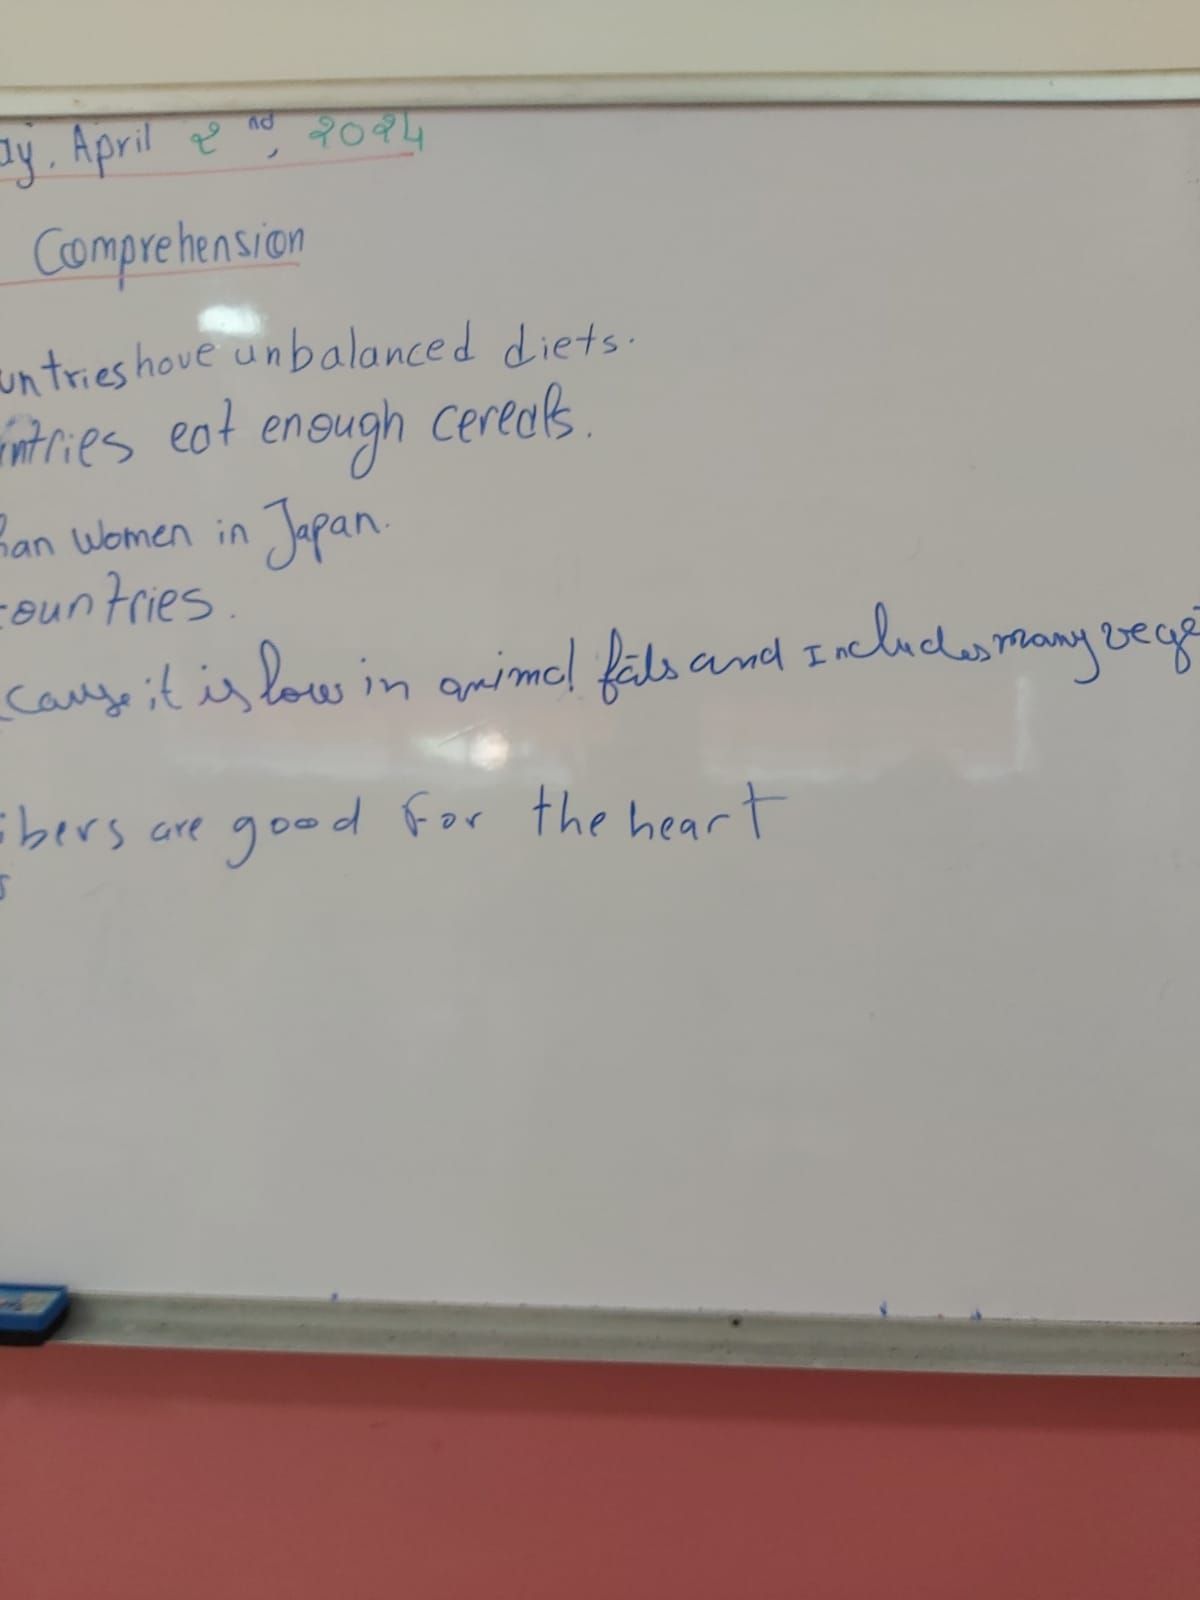 ay, April 2nd, 2024
Comprehension
untries have unbalanced diets.
ntries eat enough cereals.
han women in Japan.
countries.
cause it is low in animal fats and Includes many vege
ibers are good for the heart
s